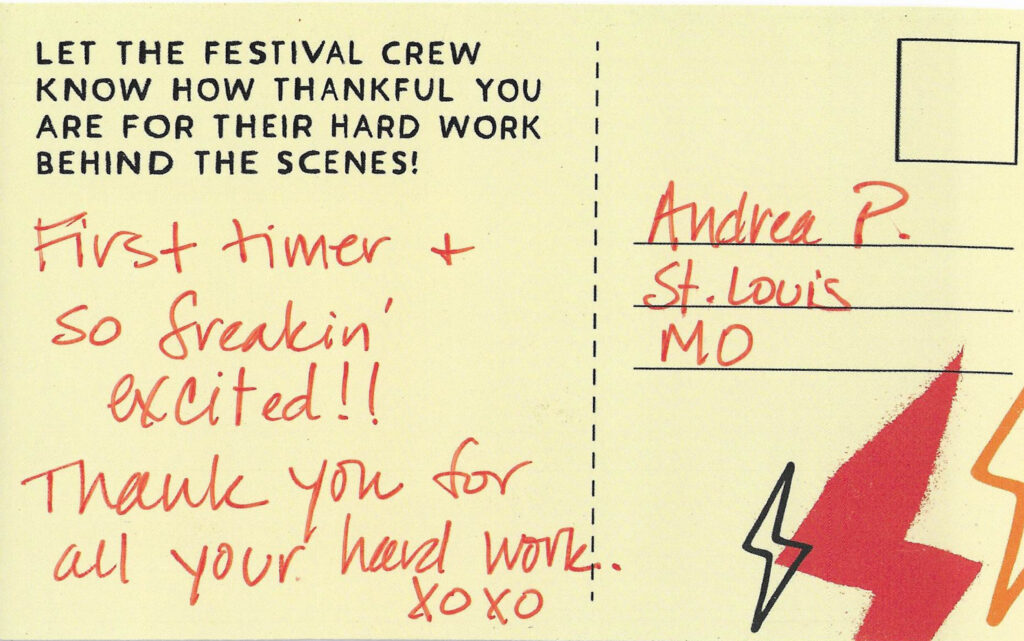 LET THE FESTIVAL CREW
KNOW HOW THANKFUL YOU
ARE FOR THEIR HARD WORK
BEHIND THE SCENES!
First timer +
so freakin'
excited!!
Thank you for
all your hard work..
xoxo
Andrea P.
St. Louis
MO